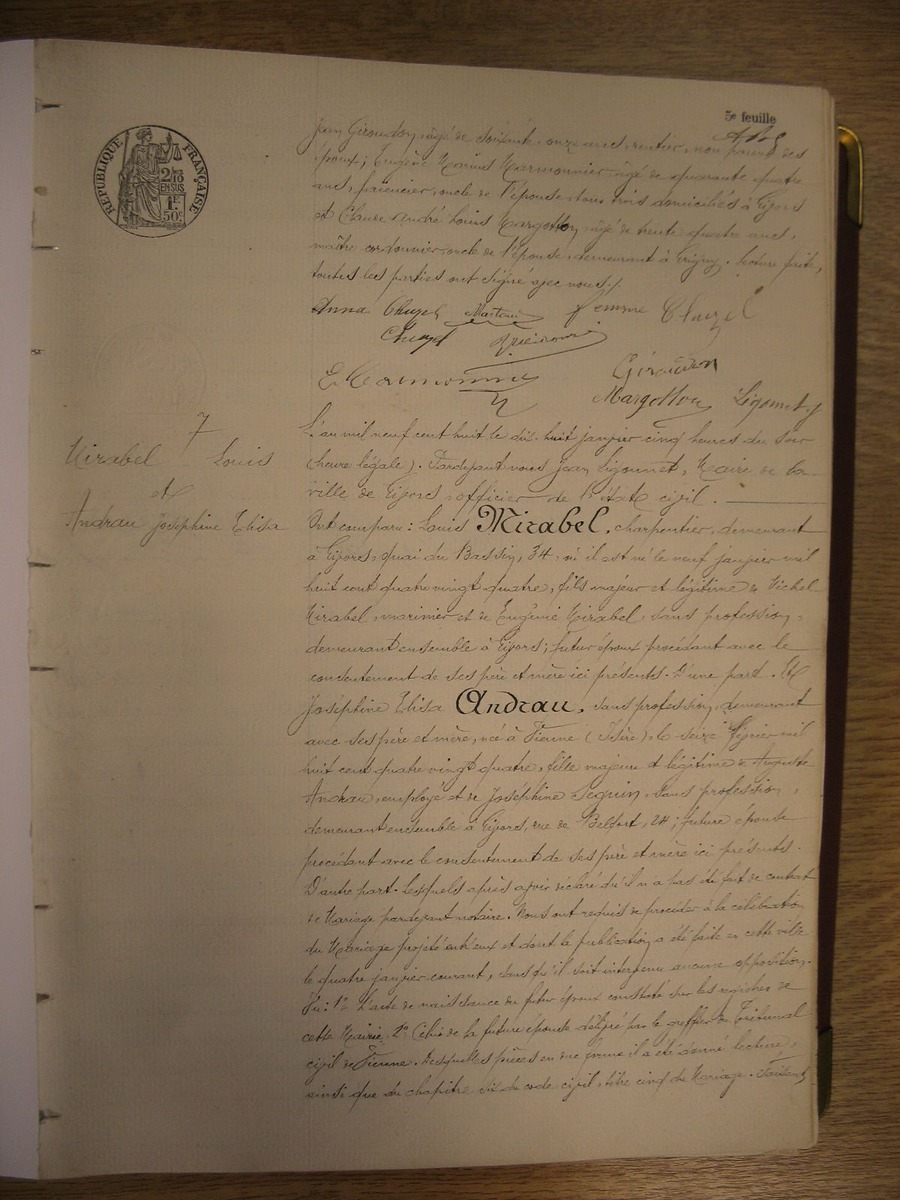 5e feuille
RÉPUBLIQUE FRANÇAISE
2/10
EN SUS
1F
50c
Jean Giroudon, âgé de soixante-onze ans, rentier, non parent des
époux; Eugène Marius Marmonnier, âgé de quarante quatre
ans, faïencier, oncle de l'épouse, tous trois domiciliés à Givors
et Claude André Louis Margotton, âgé de trente quatre ans,
maître cordonnier, oncle de l'épouse, demeurant à Grigny. Lecture faite,
toutes les parties ont signé avec nous./.
Anna Chuzel femme Chuzel
Chuzel
E Marmonnier Giroudon
Margotton Ligonnet
7
Mirabel Louis
et
Andrau Joséphine Elisa
L'an mil neuf cent huit le dix-huit janvier cinq heures du soir
(heure légale). Pardevant nous Jean Ligonnet, Maire de la
ville de Givors, officier de l'état civil.
Ont comparu: Louis Mirabel, charpentier, demeurant
à Givors, quai du Bassin, 34, où il est né le neuf janvier mil
huit cent quatre vingt quatre, fils majeur et légitime de Michel
Mirabel, marinier et de Eugénie Mirabel, sans profession,
demeurant ensemble à Givors; futur époux procédant avec le
consentement de ses père et mère ici présents. D'une part. Et
Joséphine Elisa Andrau, sans profession, demeurant
avec ses père et mère, née à Vienne (Isère), le seize février mil
huit cent quatre vingt quatre, fille majeure et légitime de Auguste
Andrau, employé et de Joséphine Seguin, sans profession,
demeurant ensemble à Givors, rue de Belfort, 24; future épouse
procédant avec le consentement de ses père et mère ici présents.
D'autre part. Lesquels après avoir déclaré qu'il n'a pas été fait de contrat
de Mariage pardevant notaire. Nous ont requis de procéder à la célébration
du Mariage projeté entr'eux et dont la publication a été faite en cette ville
le quatre janvier courant, sans qu'il soit intervenu aucune opposition.
Vu: 1° L'acte de naissance du futur époux constaté sur les registres de
cette Mairie, 2° Celui de la future épouse délivré par le greffier du Tribunal
civil de Vienne. Desquelles pièces en due forme il a été donné lecture,
ainsi que du chapitre six du code civil, titre cinq du Mariage. Faisant